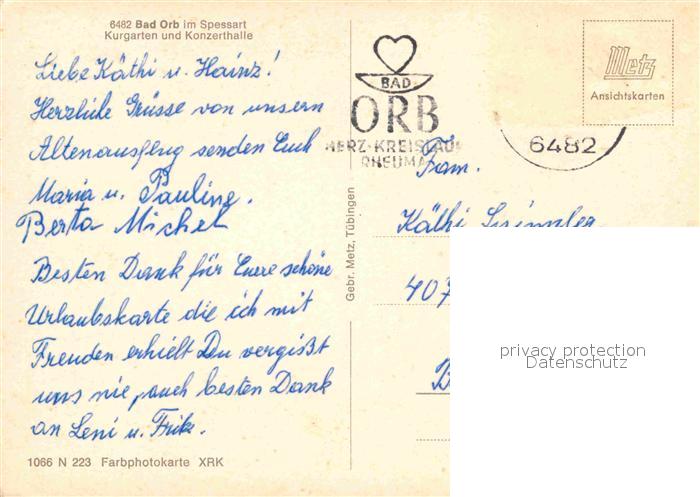 6482 Bad Orb im Spessart
Kurgarten und Konzerthalle
Liebe Käthi u. Hainz!
Herzliche Grüsse von unsern
Altenausflug senden Euch
Maria u. Pauline.
Berta Michel
Besten Dank für Euere schöne
Urlaubskarte die ich mit
Freuden erhielt Du vergißt
uns nie, auch besten Dank
an Leni u. Fritz.
1066 N 223 Farbphotokarte XRK
Gebr. Metz, Tübingen
BAD
ORB
HERZ-KREISLAUF
RHEUMA
6482
Metz
Ansichtskarten
Fam.
Käthi
407
privacy protection
Datenschutz